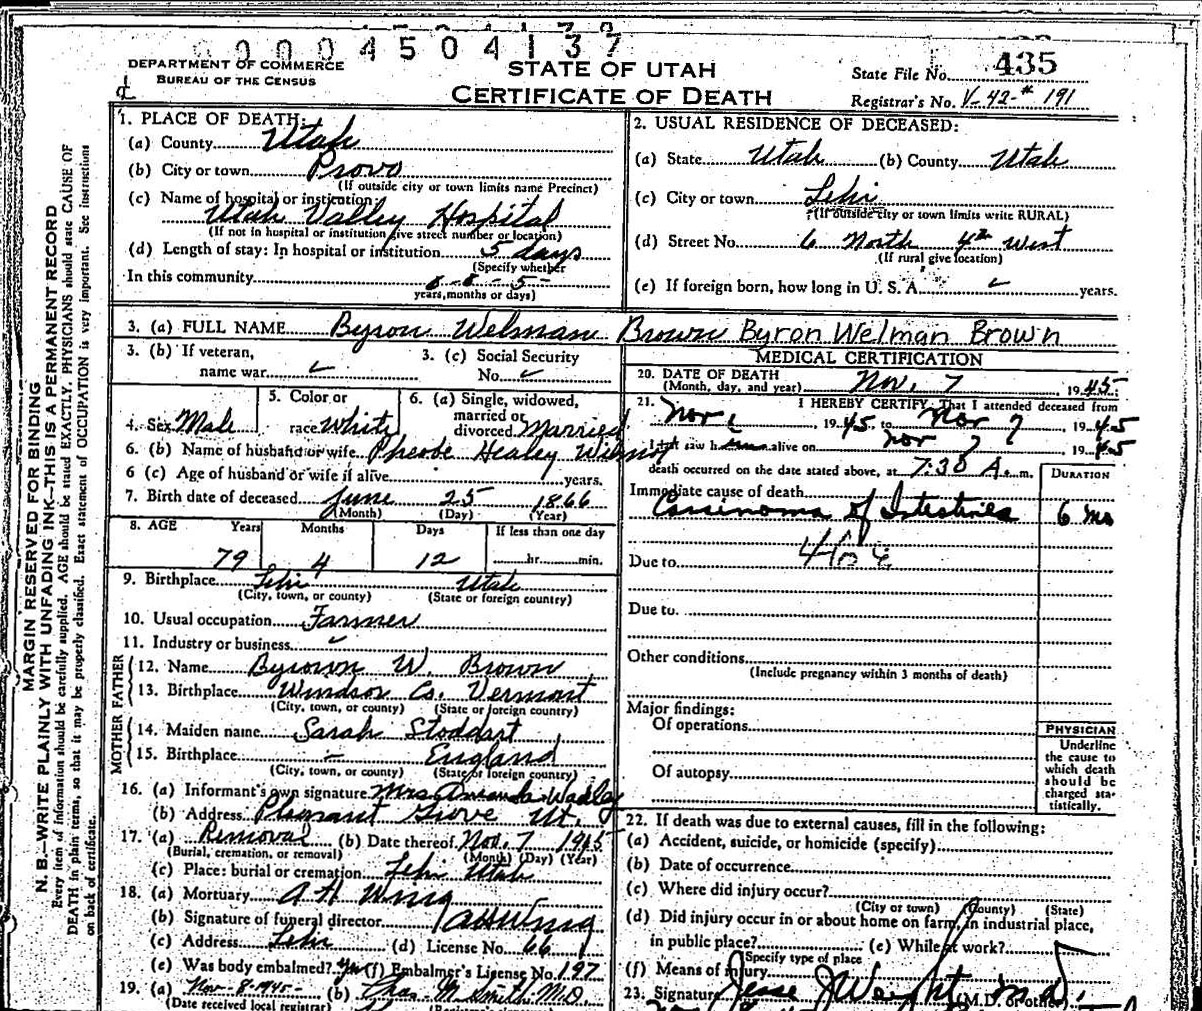 0 0 0 4 5 0 4 1 3 7
DEPARTMENT OF COMMERCE
BUREAU OF THE CENSUS
STATE OF UTAH
CERTIFICATE OF DEATH
State File No. 435
Registrar's No. V-42-# 191
MARGIN RESERVED FOR BINDING
N. B.—WRITE PLAINLY WITH UNFADING INK—THIS IS A PERMANENT RECORD
Every item of information should be carefully supplied. AGE should be stated EXACTLY. PHYSICIANS should state CAUSE OF
DEATH in plain terms, so that it may be properly classified. Exact statement of OCCUPATION is very important. See instructions
on back of certificate.
1. PLACE OF DEATH:
(a) County Utah
(b) City or town Provo
(If outside city or town limits name Precinct)
(c) Name of hospital or institution:
Utah Valley Hospital
(If not in hospital or institution give street number or location)
(d) Length of stay: In hospital or institution 5 days
(Specify whether
In this community
years, months or days)
2. USUAL RESIDENCE OF DECEASED:
(a) State Utah (b) County Utah
(c) City or town Lehi
(If outside city or town limits write RURAL)
(d) Street No. 6 North 4th West
(If rural give location)
(e) If foreign born, how long in U. S. A. years.
3. (a) FULL NAME Byron Welman Brown Byron Welman Brown
3. (b) If veteran,
name war
3. (c) Social Security
No.
4. Sex Male
5. Color or
race White
6. (a) Single, widowed,
married or
divorced Married
6. (b) Name of husband or wife Pheobe Healey Wilmot
6 (c) Age of husband or wife if alive years.
7. Birth date of deceased June 25 1866
(Month) (Day) (Year)
8. AGE Years Months Days If less than one day
79 4 12 hr. min.
9. Birthplace Lehi Utah
(City, town, or county) (State or foreign country)
10. Usual occupation Farmer
11. Industry or business
FATHER
12. Name Byrown W. Brown
13. Birthplace Windsor Co. Vermont
(City, town, or county) (State or foreign country)
MOTHER
14. Maiden name Sarah Stoddart
15. Birthplace — England
(City, town, or county) (State or foreign country)
16. (a) Informant's own signature Mrs Amanda Wadley
(b) Address Pleasant Grove Ut.
17. (a) Removal (b) Date thereof Nov. 7 1945
(Burial, cremation, or removal) (Month) (Day) (Year)
(c) Place: burial or cremation Lehi Utah
18. (a) Mortuary A H Wing
(b) Signature of funeral director A H Wing
(c) Address Lehi (d) License No. 66
(e) Was body embalmed? yes (f) Embalmer's License No. 197
19. (a) Nov-8-1945- (b) Chas. M. Smith M.D.
(Date received local registrar)
MEDICAL CERTIFICATION
20. DATE OF DEATH
(Month, day, and year) Nov. 7, 1945
21. I HEREBY CERTIFY, That I attended deceased from
Nov 1945 to Nov 7 1945
I last saw h alive on Nov 7 1945
death occurred on the date stated above, at 7:30 A. m.
DURATION
Immediate cause of death
Carcinoma of Intestines 6 mo
Due to
Due to
Other conditions
(Include pregnancy within 3 months of death)
Major findings:
Of operations
Of autopsy
PHYSICIAN
Underline
the cause to
which death
should be
charged sta-
tistically.
22. If death was due to external causes, fill in the following:
(a) Accident, suicide, or homicide (specify)
(b) Date of occurrence
(c) Where did injury occur?
(City or town) (County) (State)
(d) Did injury occur in or about home on farm, in industrial place,
in public place? (e) While at work?
Specify type of place
(f) Means of injury
23. Signature Jesse J Weight M.D. (M.D. or other)